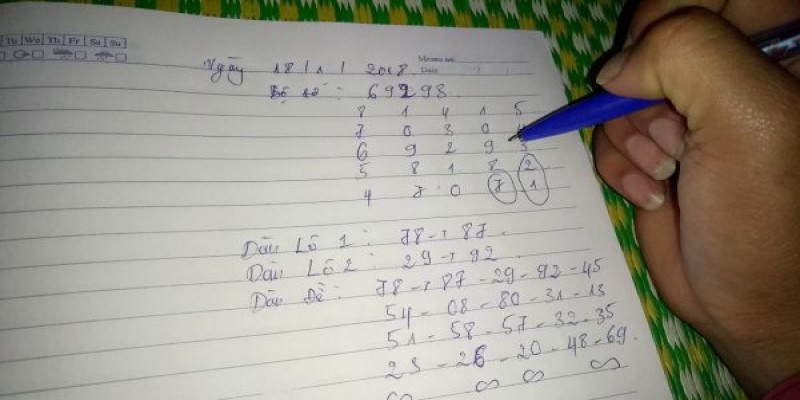 Tu We Th Fr Sa Su
Memo No.
Date
Ngày 18 / 1 / 2018
Bộ số: 69298
8 1 4 1 5
7 0 3 0 4
6 9 2 9 3
5 8 1 8 2
4 7 0 7 1
Dàn Lô 1: 78 → 87
Dàn Lô 2: 29 → 92
Dàn Đề: 78 → 87 - 29 - 92 - 45
54 - 08 - 80 - 31 - 13
51 - 58 - 57 - 32 - 35
23 - 26 - 20 - 48 - 69.